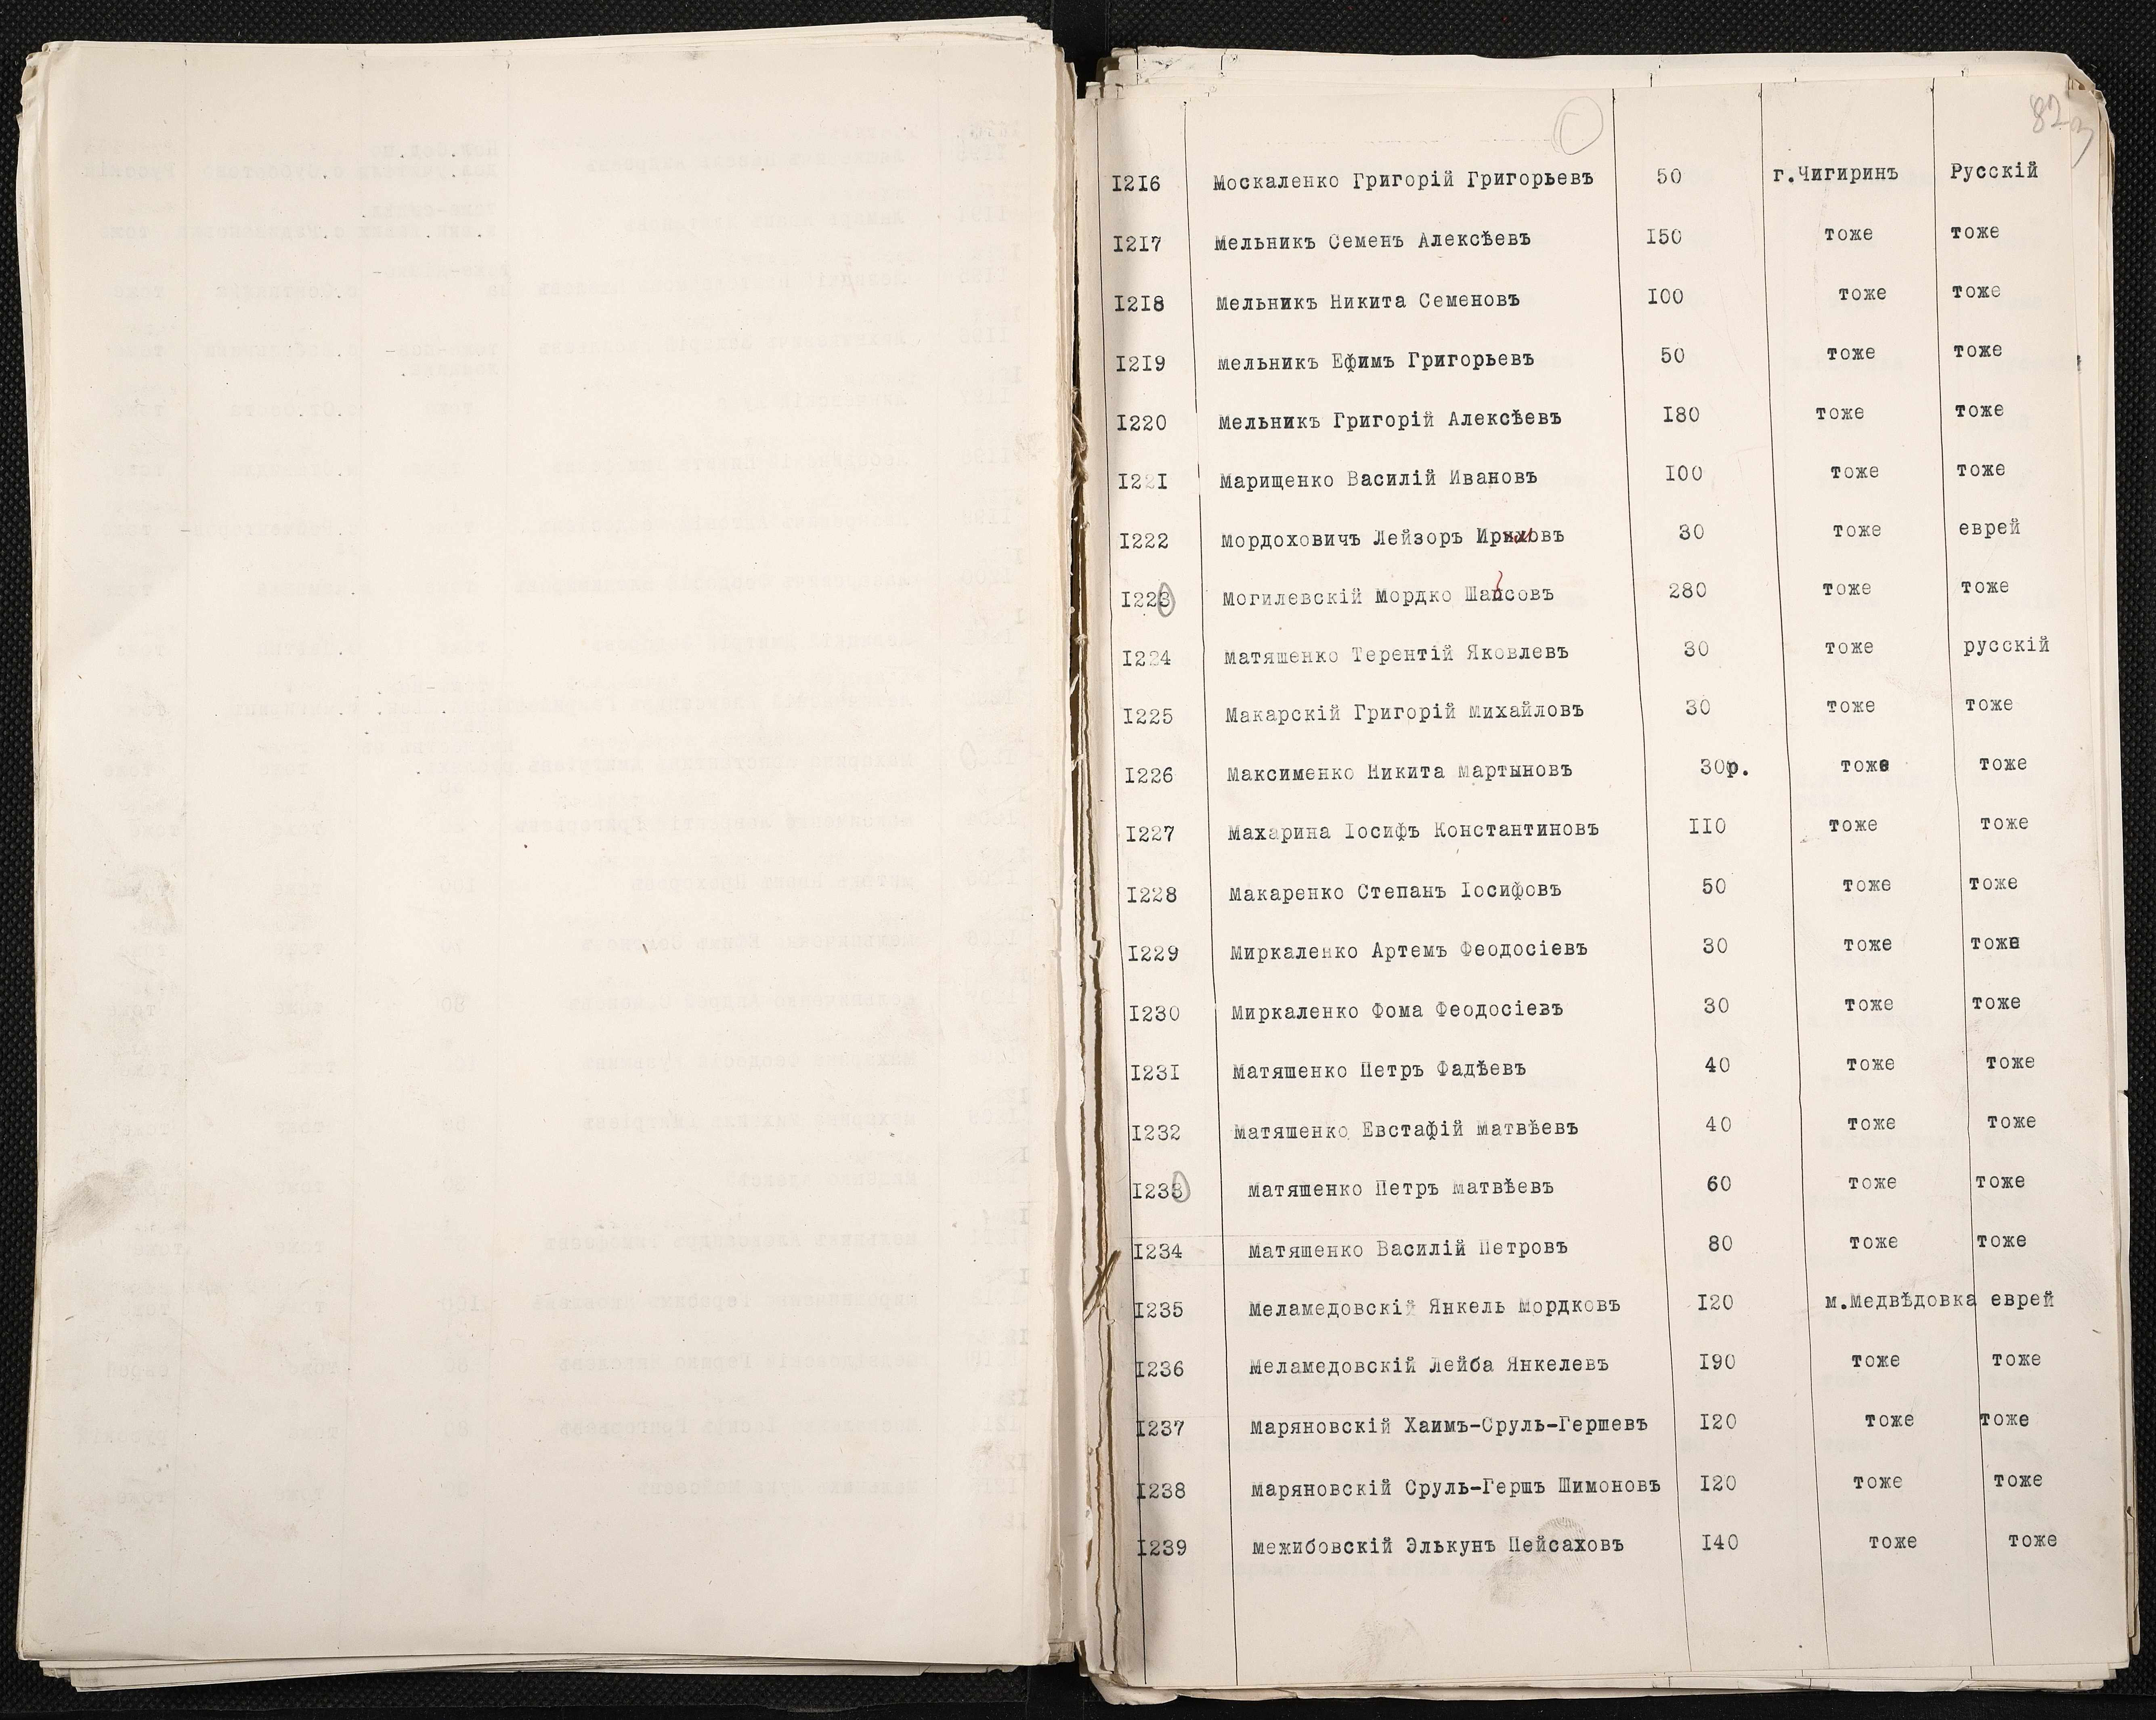 82
1216 Москаленко Григорій Григорьевъ 50 г.Чигиринъ Русскій
1217 Мельникъ Семенъ Алексѣевъ 150 тоже тоже
1218 Мельникъ Никита Семеновъ 100 тоже тоже
1219 Мельникъ Ефимъ Григорьевъ 50 тоже тоже
1220 Мельникъ Григорій Алексѣевъ 180 тоже тоже
1221 Марищенко Василій Ивановъ 100 тоже тоже
1222 Мордоховичъ Лейзоръ 30 тоже еврей
1223 Могилевскій Мордко 280 тоже тоже
1224 Матяшенко Терентій Яковлевъ 30 тоже русскій
1225 Макарскій Григорій Михайловъ 30 тоже тоже
1226 Максименко Никита Мартыновъ 30р. тоже тоже
1227 Махарина Іосифъ Константиновъ 110 тоже тоже
1228 Макаренко Степанъ Іосифовъ 50 тоже тоже
1229 Миркаленко Артемъ Феодосіевъ 30 тоже тоже
1230 Миркаленко Фома Феодосіевъ 30 тоже тоже
1231 Матяшенко Петръ Фадѣевъ 40 тоже тоже
1232 Матяшенко Евстафій Матвѣевъ 40 тоже тоже
1233 Матяшенко Петръ Матвѣевъ 60 тоже тоже
1234 Матяшенко Василій Петровъ 80 тоже тоже
1235 Меламедовскій Янкель Мордковъ 120 м.Медвѣдовка еврей
1236 Меламедовскій Лейба Янкелевъ 190 тоже тоже
1237 Маряновскій Хаимъ-Сруль-Гершевъ 120 тоже тоже
1238 Маряновскій Сруль-Гершъ Шимоновъ 120 тоже тоже
1239 Межибовскій Элькунъ Пейсаховъ 140 тоже тоже